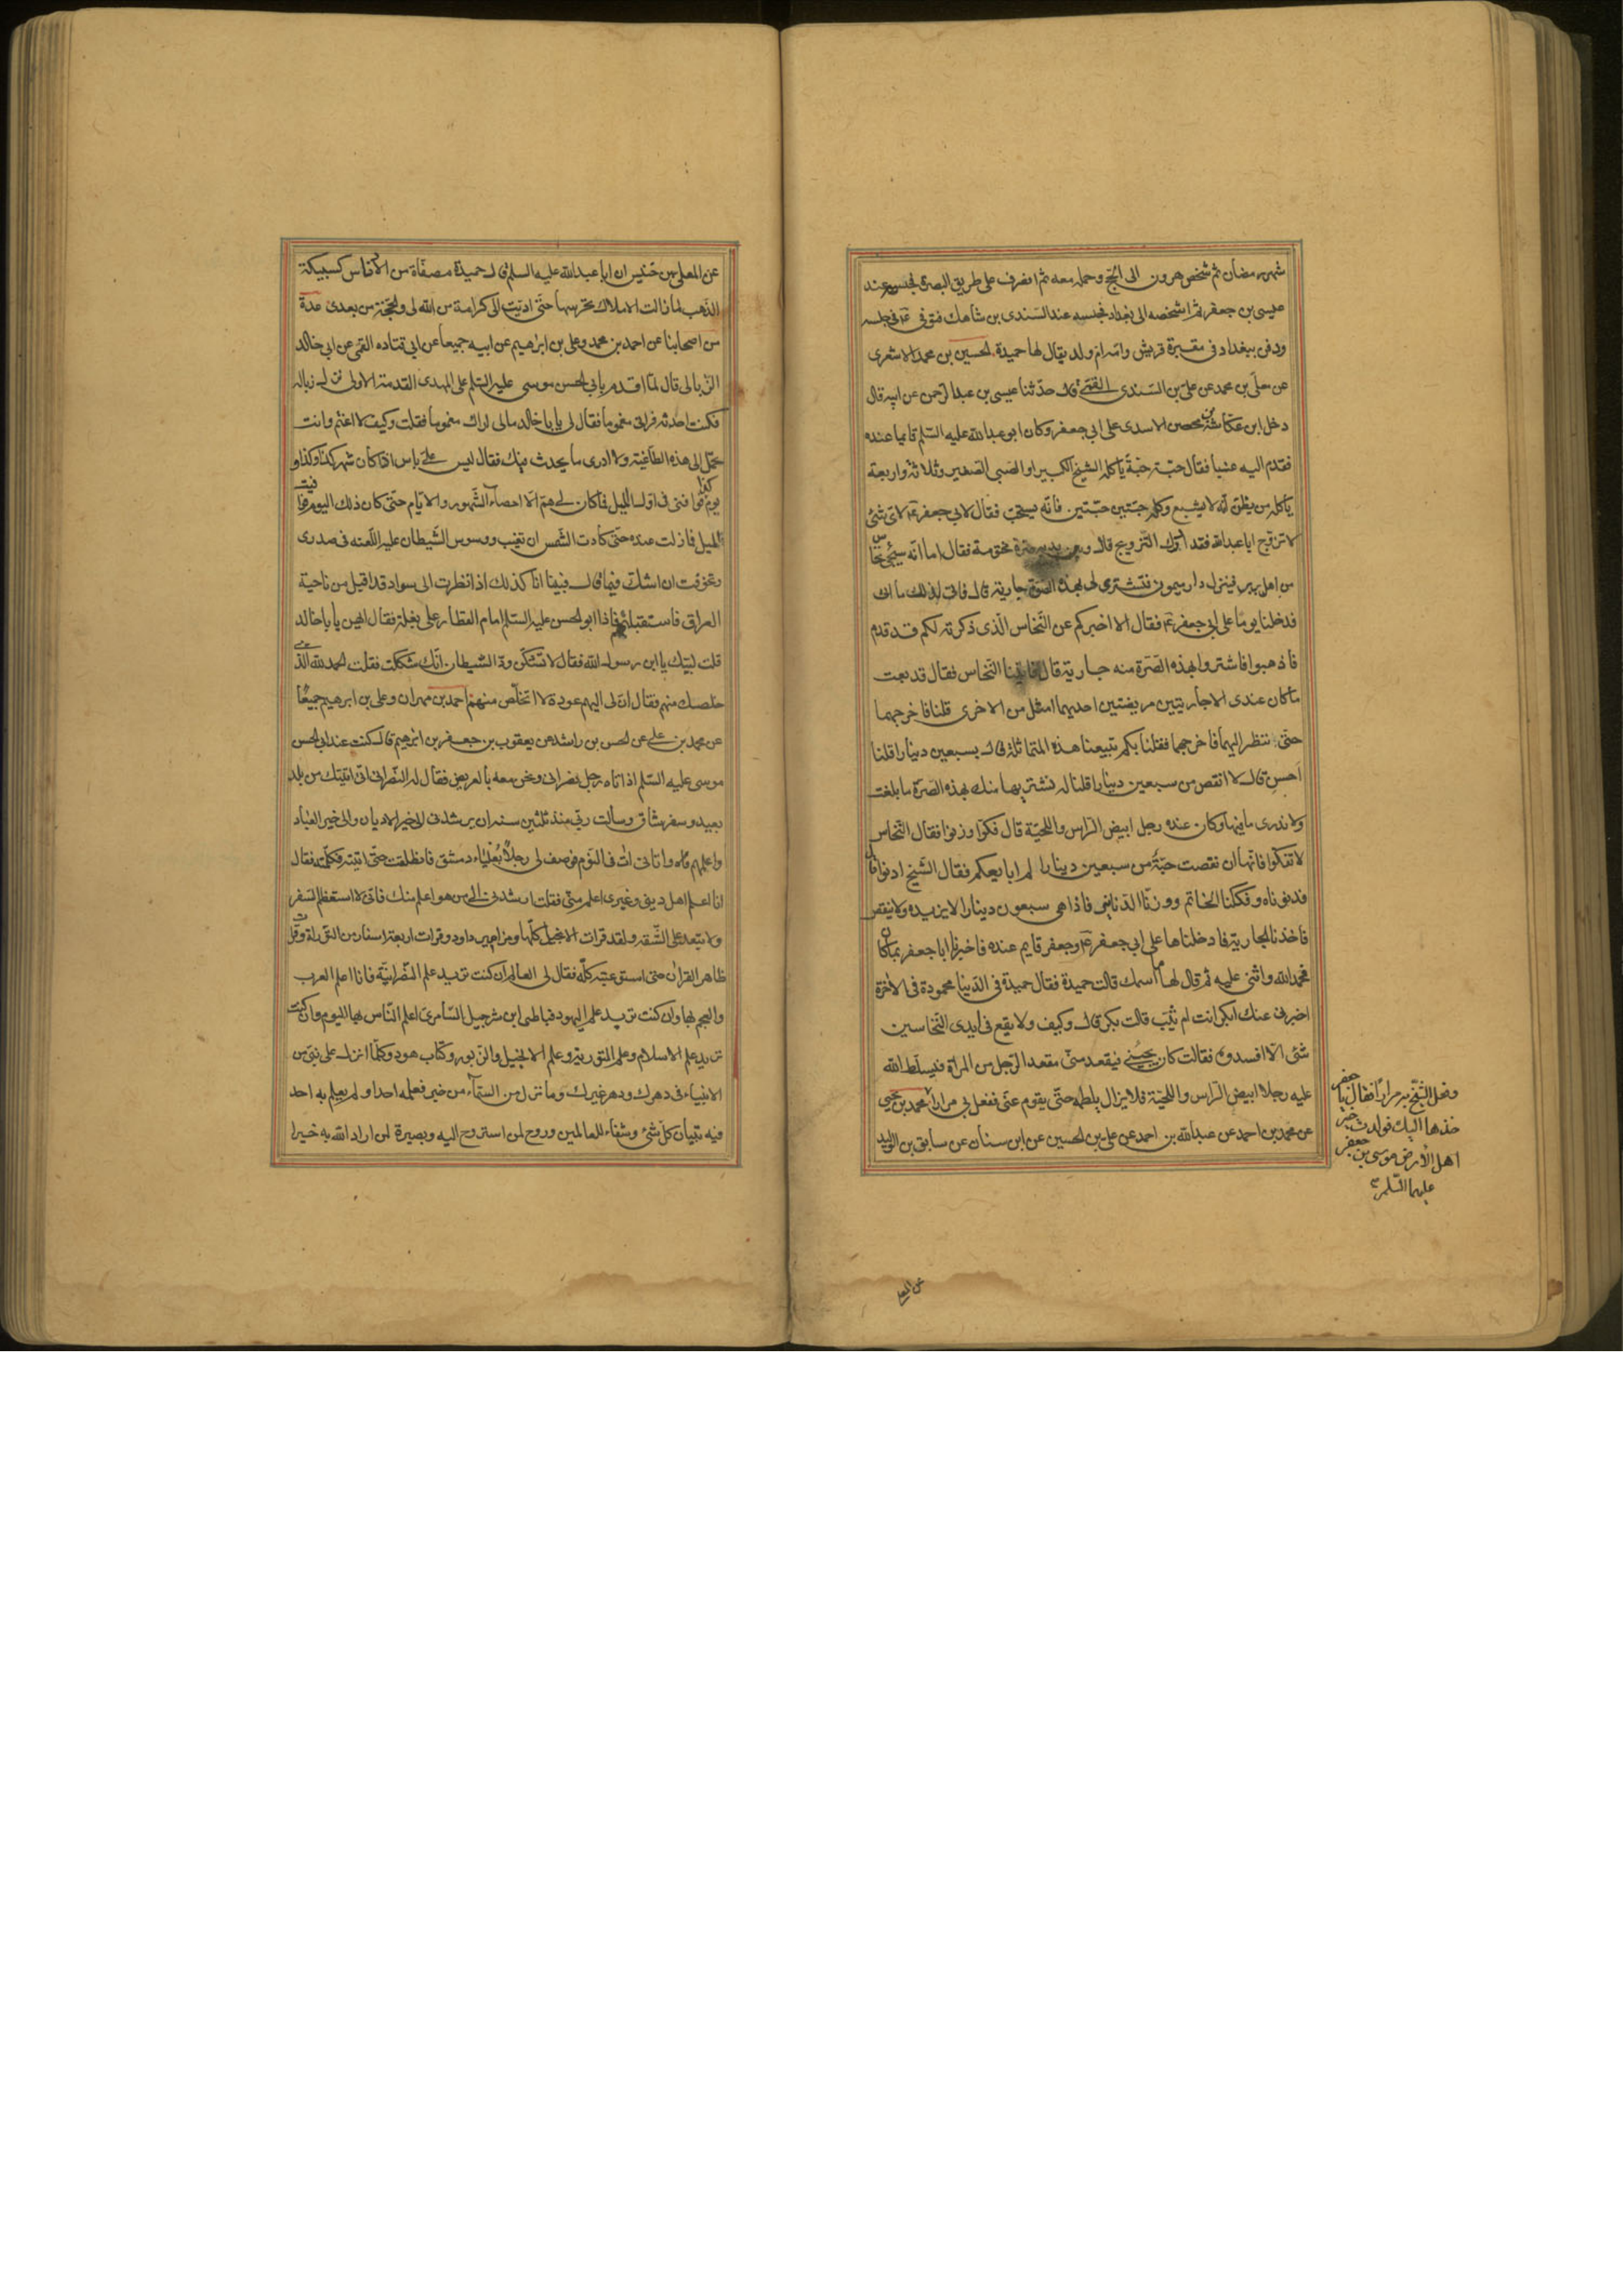 شهر رمضان ثم شخص هرون الى الحج وحمله معه ثم انصرف على طريق البصرة فحبسه عند
عيسى بن جعفر ثم اشخصه الى بغداد فحبسه عند السندى بن شاهك فتوفى ع فى حبسه
ودفن ببغداد فى مقبرة قريش وامه ام ولد يقال لها حميدة الحسين بن محمد الاشعرى
عن معلى بن محمد عن على بن السندى القمى قال حدثنا عيسى بن عبد الرحمن عن ابيه قال
دخل ابن عكاشة بن محصن الاسدى على ابى جعفر وكان ابو عبد الله عليه السلم قايما عنده
فقدم اليه عنبا فقال حبة حبة ياكله الشيخ الكبير او الصبى الصغير وثلاثة واربعة
ياكله من يظن انه لا يشبع وكله حبتين حبتين فانه يستحب فقال لابى جعفر ع لاى شئ
لا تزوج ابا عبد الله فقد ادرك التزويج قال وبين يديه صرة مختومة فقال اما انه سيجئ نخاس
من اهل بربر فينزل دار ميمون فتشترى له بهذه الصرة جارية قال فاتى لذلك ما اتى
فدخلنا يوما على ابى جعفر ع فقال الا اخبركم عن النخاس الذى ذكرته لكم قد قدم
فاذهبوا فاشتروا بهذه الصرة منه جارية قال فاتينا النخاس فقال قد بعت
ما كان عندى الا جاريتين مريضتين احديهما امثل من الاخرى قلنا فاخرجهما
حتى ننظر اليهما فاخرجهما فقلنا بكم تبيعنا هذه المتماثلة قال بسبعين دينارا قلنا
احسن قال لا انقص من سبعين دينارا قلنا له نشتريها منك بهذه الصرة ما بلغت
ولا ندرى ما فيها وكان عنده رجل ابيض الراس واللحية قال فكوا وزنوا فقال النخاس
لا تفكوا فانها ان نقصت حبة من سبعين دينارا لم ابايعكم فقال الشيخ ادنوا قال
فدنوناه وفككنا الخاتم ووزنا الدنانير فاذا هى سبعون دينارا لا يزيد ولا ينقص
فاخذنا الجارية فادخلناها على ابى جعفر ع وجعفر قايم عنده فاخبرنا ابا جعفر بما كان
فحمد الله واثنى عليه ثم قال لها ما اسمك قالت حميدة فقال حميدة فى الدنيا محمودة فى الاخرة
اخبرنى عنك ابكر انت ام ثيب قالت بكر قال وكيف ولا يقع فى ايدى النخاسين
شئ الا افسدوه فقالت كان يجيئنى فيقعد منى مقعد الرجل من المراة فيسلط الله
عليه رجلا ابيض الراس واللحية فلا يزال يلطمه حتى يقوم عنى ففعل بى مرارا محمد بن يحيى
عن محمد بن احمد عن عبد الله بن احمد عن على بن الحسين عن ابن سنان عن سابق بن الوليد
وفعل الشيخ به مرارا فقال يا جعفر
خذها اليك فولدت خير
اهل الارض موسى بن جعفر
عليهما السلم
عن المعلى بن خنيس ان ابا عبد الله عليه السلم قال حميدة مصفاة من الادناس كسبيكة
الذهب ما زالت الاملاك تحرسها حتى اديت الى كرامة من الله لى والحجة من بعدى عدة
من اصحابنا عن احمد بن محمد وعلى بن ابراهيم عن ابيه جميعا عن ابى قتاده القمى عن ابى خالد
الزبالى قال لما اقدم بابى الحسن موسى عليه السلم على المهدى القدمة الاولى نزل زباله
فكنت احدثه فرانى مغموما فقال لى يا با خالد مالى اراك مغموما فقلت وكيف لا اغتم وانت
تحمل الى هذه الطاغية ولا ادرى ما يحدث فيك فقال ليس على باس اذا كان شهر كذا وكذا و
يوم كذا فوافنى فى اول الميل فما كان لى هم الا احصاء الشهور والايام حتى كان ذلك اليوم فوافيت
الميل فما زلت عنده حتى كادت الشمس ان تغيب ووسوس الشيطان عليه اللعنه فى صدرى
وتخوفت ان اشك فيما قال فبينا انا كذلك اذا نظرت الى سواد قد اقبل من ناحية
العراق فاستقبلتهم فاذا ابو الحسن عليه السلم امام القطار على بغلة فقال ايهن يا با خالد
قلت لبيك يا ابن رسول الله فقال لا تشكن ود الشيطان انك شككت فقلت الحمد لله الذى
خلصك منهم فقال ان لى اليهم عودة لا اتخلص منهم احمد بن مهران وعلى بن ابرهيم جميعا
عن محمد بن على عن الحسن بن راشد عن يعقوب بن جعفر بن ابرهيم قال كنت عند ابى الحسن
موسى عليه السلم اذ اتاه رجل نصرانى ونحن معه بالعريض فقال له النصرانى انى اتيتك من بلد
بعيد وسفر شاق وسالت ربى منذ ثلثين سنة ان يرشدنى الى خير الاديان والى خير العباد
واعلمهم واتانى ات فى النوم فوصف لى رجلا بعلياء دمشق فانطلقت حتى اتيته فكلمته فقال
انا اعلم اهل دينى وغيرى اعلم منى فقلت ارشدنى الى من هو اعلم منك فانى لا استعظم السفر
ولا تبعد على الشقه ولقد قرات الانجيل كلها ومزامير داود وقرات اربعة اسفار من التوراة وقرات
ظاهر القران حتى استوعبته كله فقال لى العالم ان كنت تريد علم النصرانية فانا اعلم العرب
والعجم بها وان كنت تريد علم اليهود فباطى ابن شرجيل السامرى اعلم الناس بها اليوم وان كنت
تريد علم الاسلام وعلم التورية وعلم الانجيل والزبور وكتاب هود وكلما انزل على نبى من
الانبياء فى دهرك ودهر غيرك وما نزل من السماء من خبر فعلمه احد او لم يعلم به احد
فيه تبيان كل شئ وشفاء للعالمين وروح لمن استروح اليه وبصيرة لمن اراد الله به خيرا